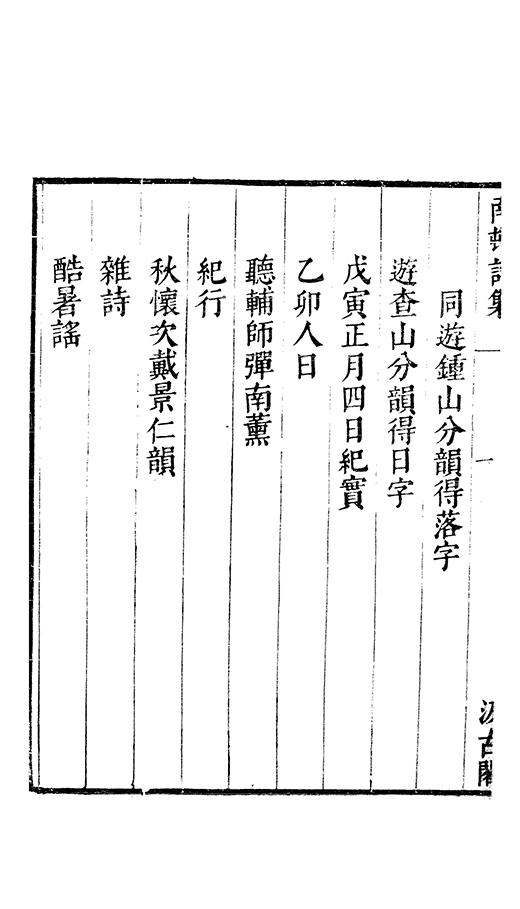 南村詩集 一 汲古閣
同遊鍾山分韻得落字
遊查山分韻得日字
戊寅正月四日紀實
乙卯人日
聽輔師彈南薰
紀行
秋懷次戴景仁韻
雜詩
酷暑謠